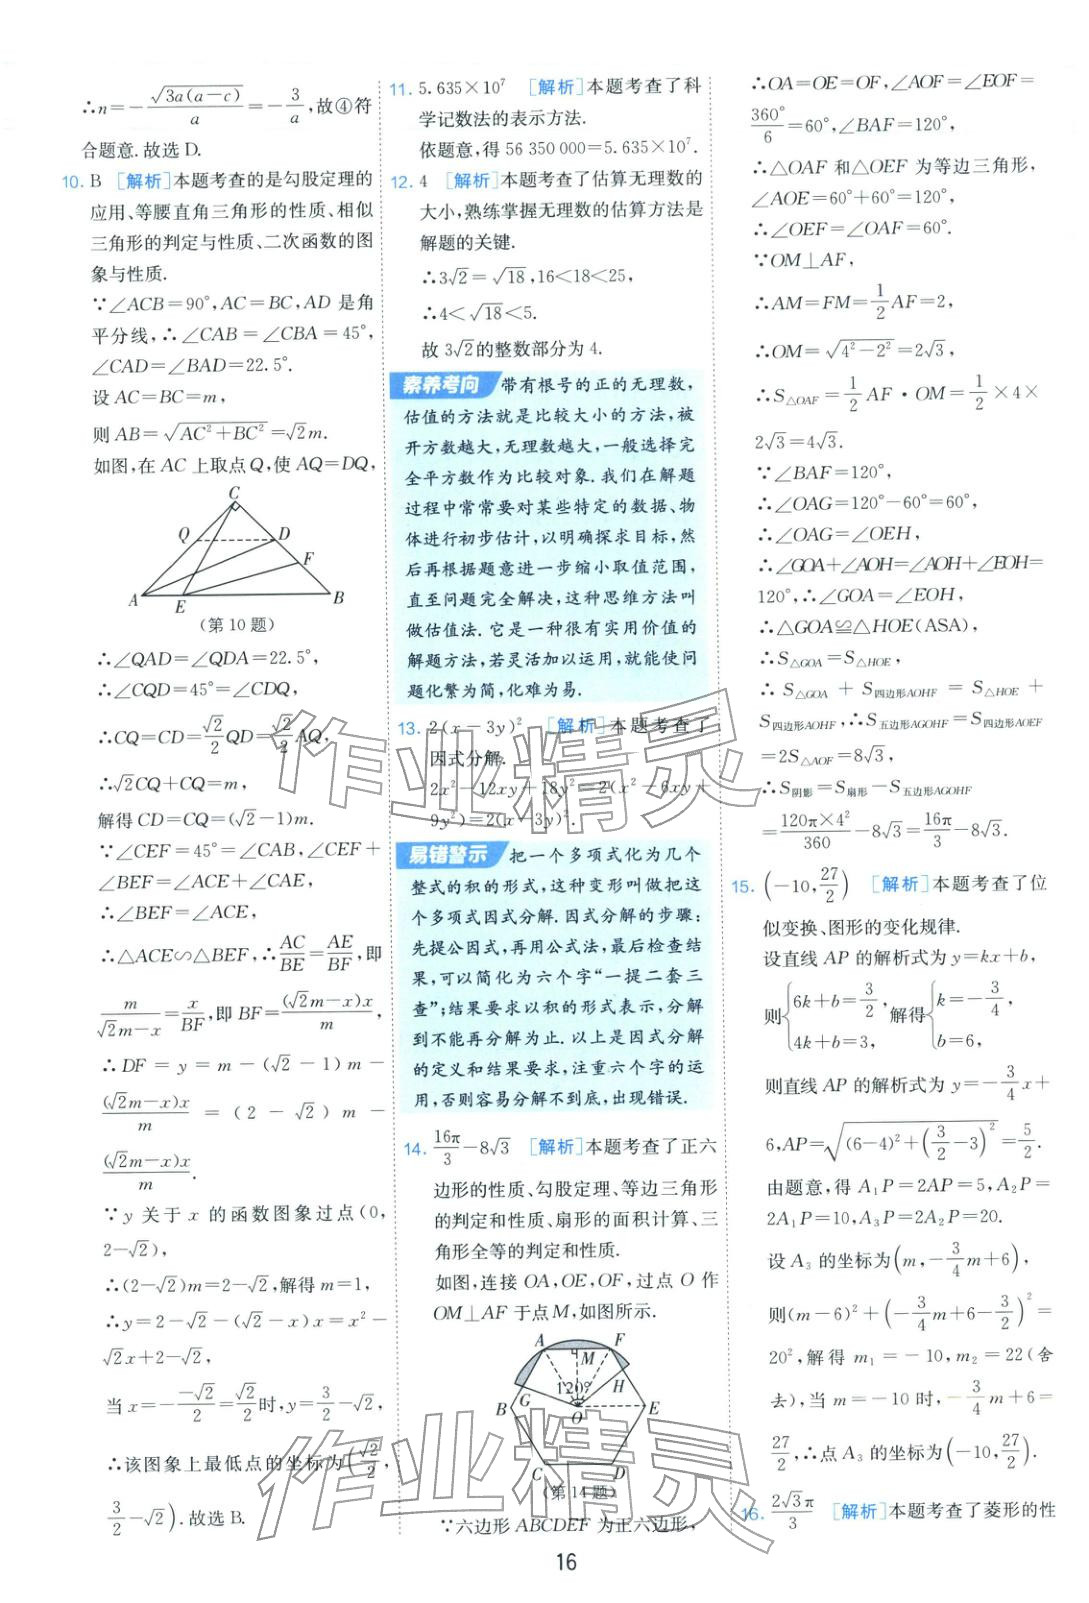 ∴n=-√3a(a-c)/a=-3/a,故④符
合题意.故选D.
10. B [解析]本题考查的是勾股定理的
应用、等腰直角三角形的性质、相似
三角形的判定与性质、二次函数的图
象与性质.
∵∠ACB=90°,AC=BC,AD是角
平分线,∴∠CAB=∠CBA=45°,
∠CAD=∠BAD=22.5°.
设AC=BC=m,
则AB=√AC²+BC²=√2m.
如图,在AC上取点Q,使AQ=DQ,
C
Q D
F
A E B
(第10题)
∴∠QAD=∠QDA=22.5°,
∴∠CQD=45°=∠CDQ,
∴CQ=CD=√2/2QD=√2/2AQ,
∴√2CQ+CQ=m,
解得CD=CQ=(√2-1)m.
∵∠CEF=45°=∠CAB,∠CEF+
∠BEF=∠ACE+∠CAE,
∴∠BEF=∠ACE,
∴△ACE∽△BEF,∴AC/BE=AE/BF,即
m/(√2m-x)=x/BF,即BF=(√2m-x)x/m,
∴DF=y=m-(√2-1)m-
(√2m-x)x/m=(2-√2)m-
(√2m-x)x/m.
∵y关于x的函数图象过点(0,
2-√2),
∴(2-√2)m=2-√2,解得m=1,
∴y=2-√2-(√2-x)x=x²-
√2x+2-√2,
当x=-(-√2)/2=√2/2时,y=3/2-√2,
∴该图象上最低点的坐标为(√2/2,
3/2-√2).故选B.
11. 5.635×10⁷ [解析]本题考查了科
学记数法的表示方法.
依题意,得56 350 000=5.635×10⁷.
12. 4 [解析]本题考查了估算无理数的
大小,熟练掌握无理数的估算方法是
解题的关键.
∴3√2=√18,16<18<25,
∴4<√18<5.
故3√2的整数部分为4.
素养考向 带有根号的正的无理数,
估值的方法就是比较大小的方法,被
开方数越大,无理数越大,一般选择完
全平方数作为比较对象.我们在解题
过程中常常要对某些特定的数据、物
体进行初步估计,以明确探求目标,然
后再根据题意进一步缩小取值范围,
直至问题完全解决,这种思维方法叫
做估值法.它是一种很有实用价值的
解题方法,若灵活加以运用,就能使问
题化繁为简,化难为易.
13. 2(x-3y)² [解析]本题考查了
因式分解.
2x²-12xy+18y²=2(x²-6xy+
9y²)=2(x-3y)².
易错警示 把一个多项式化为几个
整式的积的形式,这种变形叫做把这
个多项式因式分解.因式分解的步骤:
先提公因式,再用公式法,最后检查结
果,可以简化为六个字“一提二套三
查”;结果要求以积的形式表示,分解
到不能再分解为止.以上是因式分解
的定义和结果要求,注重六个字的运
用,否则容易分解不到底,出现错误.
14. 16π/3-8√3 [解析]本题考查了正六
边形的性质、勾股定理、等边三角形
的判定和性质、扇形的面积计算、三
角形全等的判定和性质.
如图,连接OA,OE,OF,过点O作
OM⊥AF于点M,如图所示.
A F
M
120° H
B G O E
C D
(第14题)
∵六边形ABCDEF为正六边形,
∴OA=OE=OF,∠AOF=∠EOF=
360°/6=60°,∠BAF=120°,
∴△OAF和△OEF为等边三角形,
∠AOE=60°+60°=120°,
∴∠OEF=∠OAF=60°.
∵OM⊥AF,
∴AM=FM=1/2AF=2,
∴OM=√4²-2²=2√3,
∴S△OAF=1/2AF·OM=1/2×4×
2√3=4√3.
∵∠BAF=120°,
∴∠OAG=120°-60°=60°,
∴∠OAG=∠OEH,
∵∠GOA+∠AOH=∠AOH+∠EOH=
120°,∴∠GOA=∠EOH,
∴△GOA≌△HOE(ASA),
∴S△GOA=S△HOE,
∴S△GOA+S四边形AOHF=S△HOE+
S四边形AOHF,∴S五边形AGOHF=S四边形AOEF
=2S△AOF=8√3,
∴S阴影=S扇形-S五边形AGOHF
=120π×4²/360-8√3=16π/3-8√3.
15. (-10,27/2) [解析]本题考查了位
似变换、图形的变化规律.
设直线AP的解析式为y=kx+b,
则{6k+b=3/2,4k+b=3,解得{k=-3/4,b=6,
则直线AP的解析式为y=-3/4x+
6,AP=√(6-4)²+(3/2-3)²=5/2.
由题意,得A₁P=2AP=5,A₂P=
2A₁P=10,A₃P=2A₂P=20.
设A₃的坐标为(m,-3/4m+6),
则(m-6)²+(-3/4m+6-3/2)²=
20²,解得m₁=-10,m₂=22(舍
去),当m=-10时,-3/4m+6=
27/2,∴点A₃的坐标为(-10,27/2).
16. 2√3π/3 [解析]本题考查了菱形的性
16
作业精灵
作业精灵